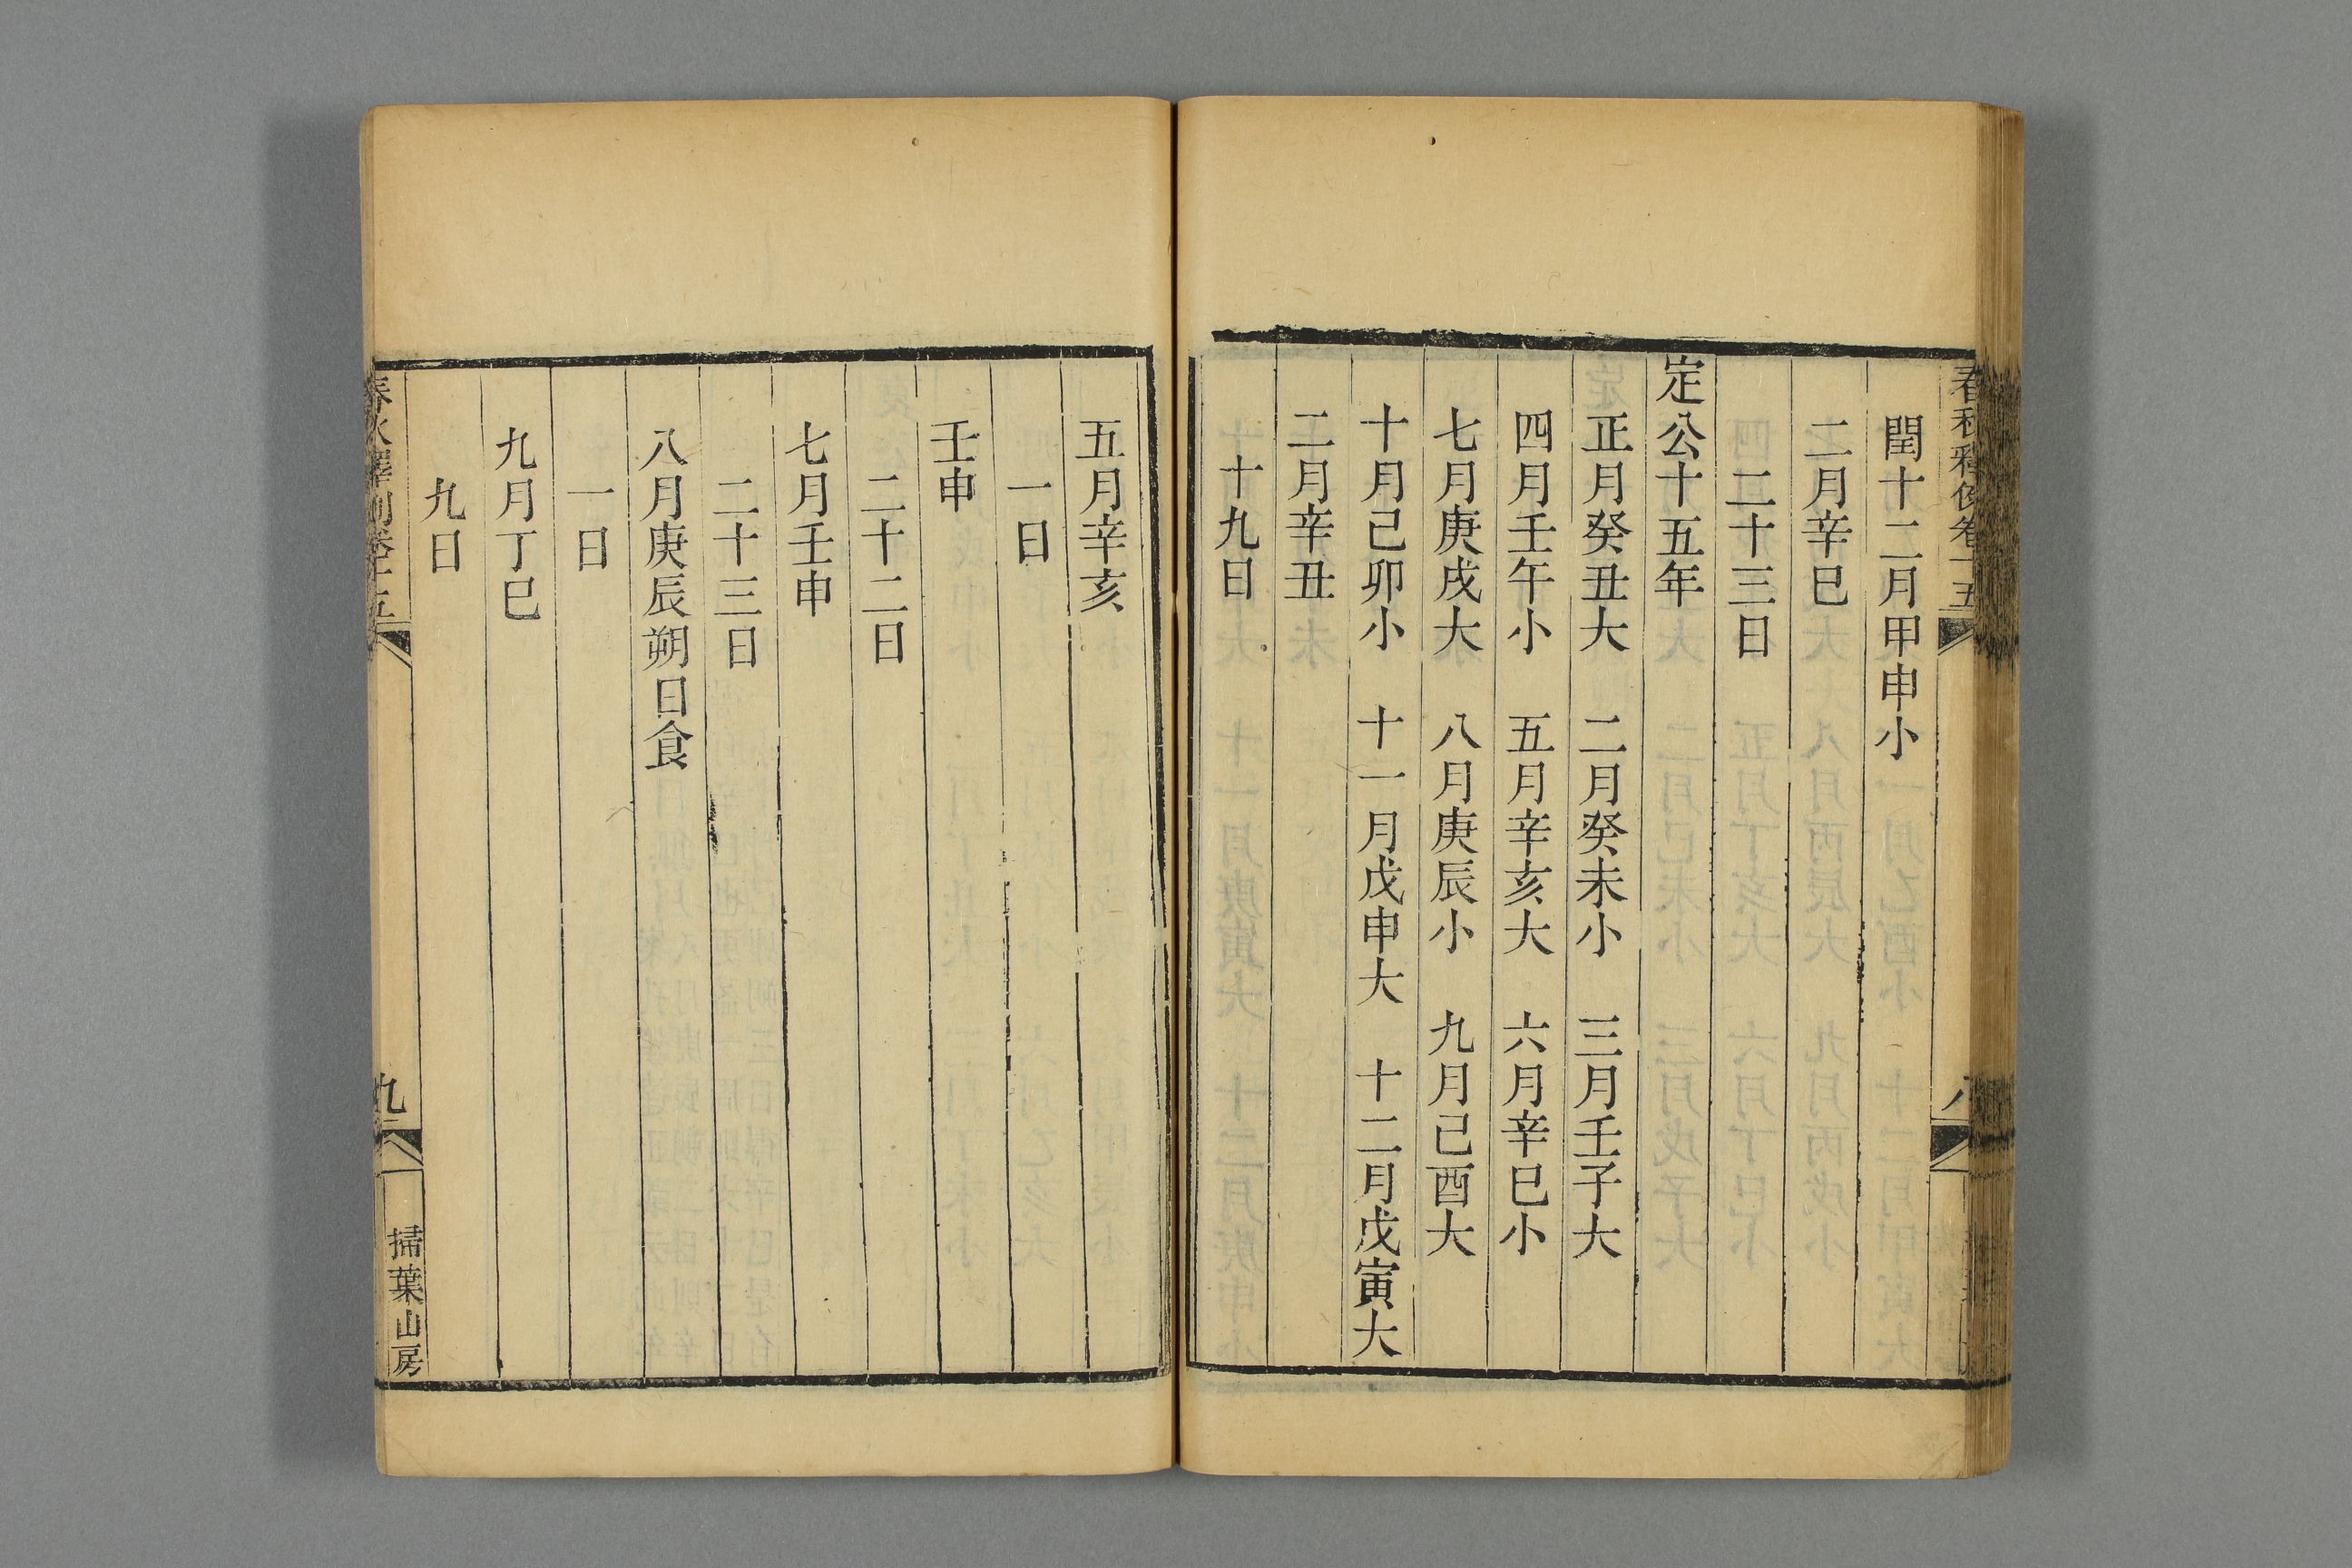 閏十二月甲申小
二月辛巳
二十三日
定公十五年
正月癸丑大　二月癸未小　三月壬子大
四月壬午小　五月辛亥大　六月辛巳小
七月庚戌大　八月庚辰小　九月己酉大
十月己卯小　十一月戊申大　十二月戊寅大
二月辛丑
十九日
五月辛亥
一日
壬申
二十二日
七月壬申
二十三日
八月庚辰朔日食
一日
九月丁巳
九日
春秋釋例卷十五
九
掃葉山房